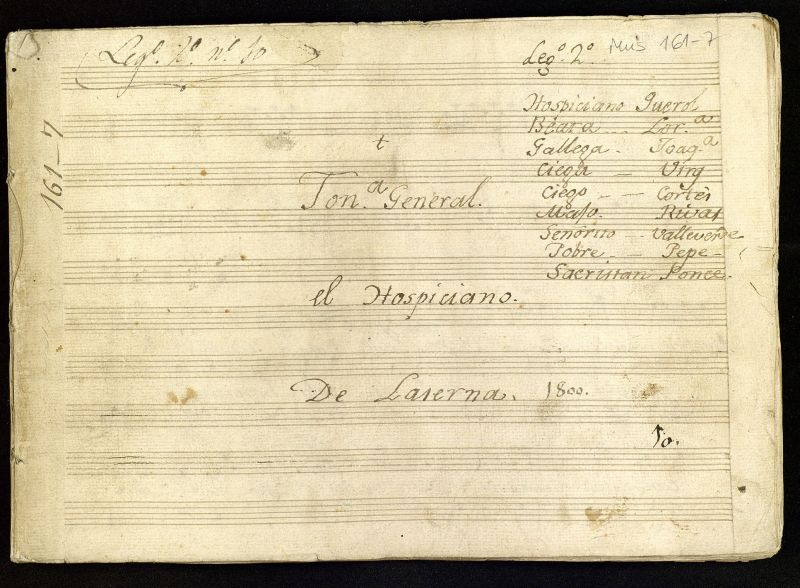 Leg.º 2.º n.º 10
Leg.º 2.º
Mus 161-7
161-7
Hospiciano Querol
Beata - - Lor.ª
Gallega - Joaq.ª
Ciega - Virg
Ciego - - Cortés
Majo. Rivas
Señorito - Valleverde
Pobre - - Pepe -
Sacristan Ponce.
t
Ton.ª General.
el Hospiciano.
De Laserna. 1800.
10.